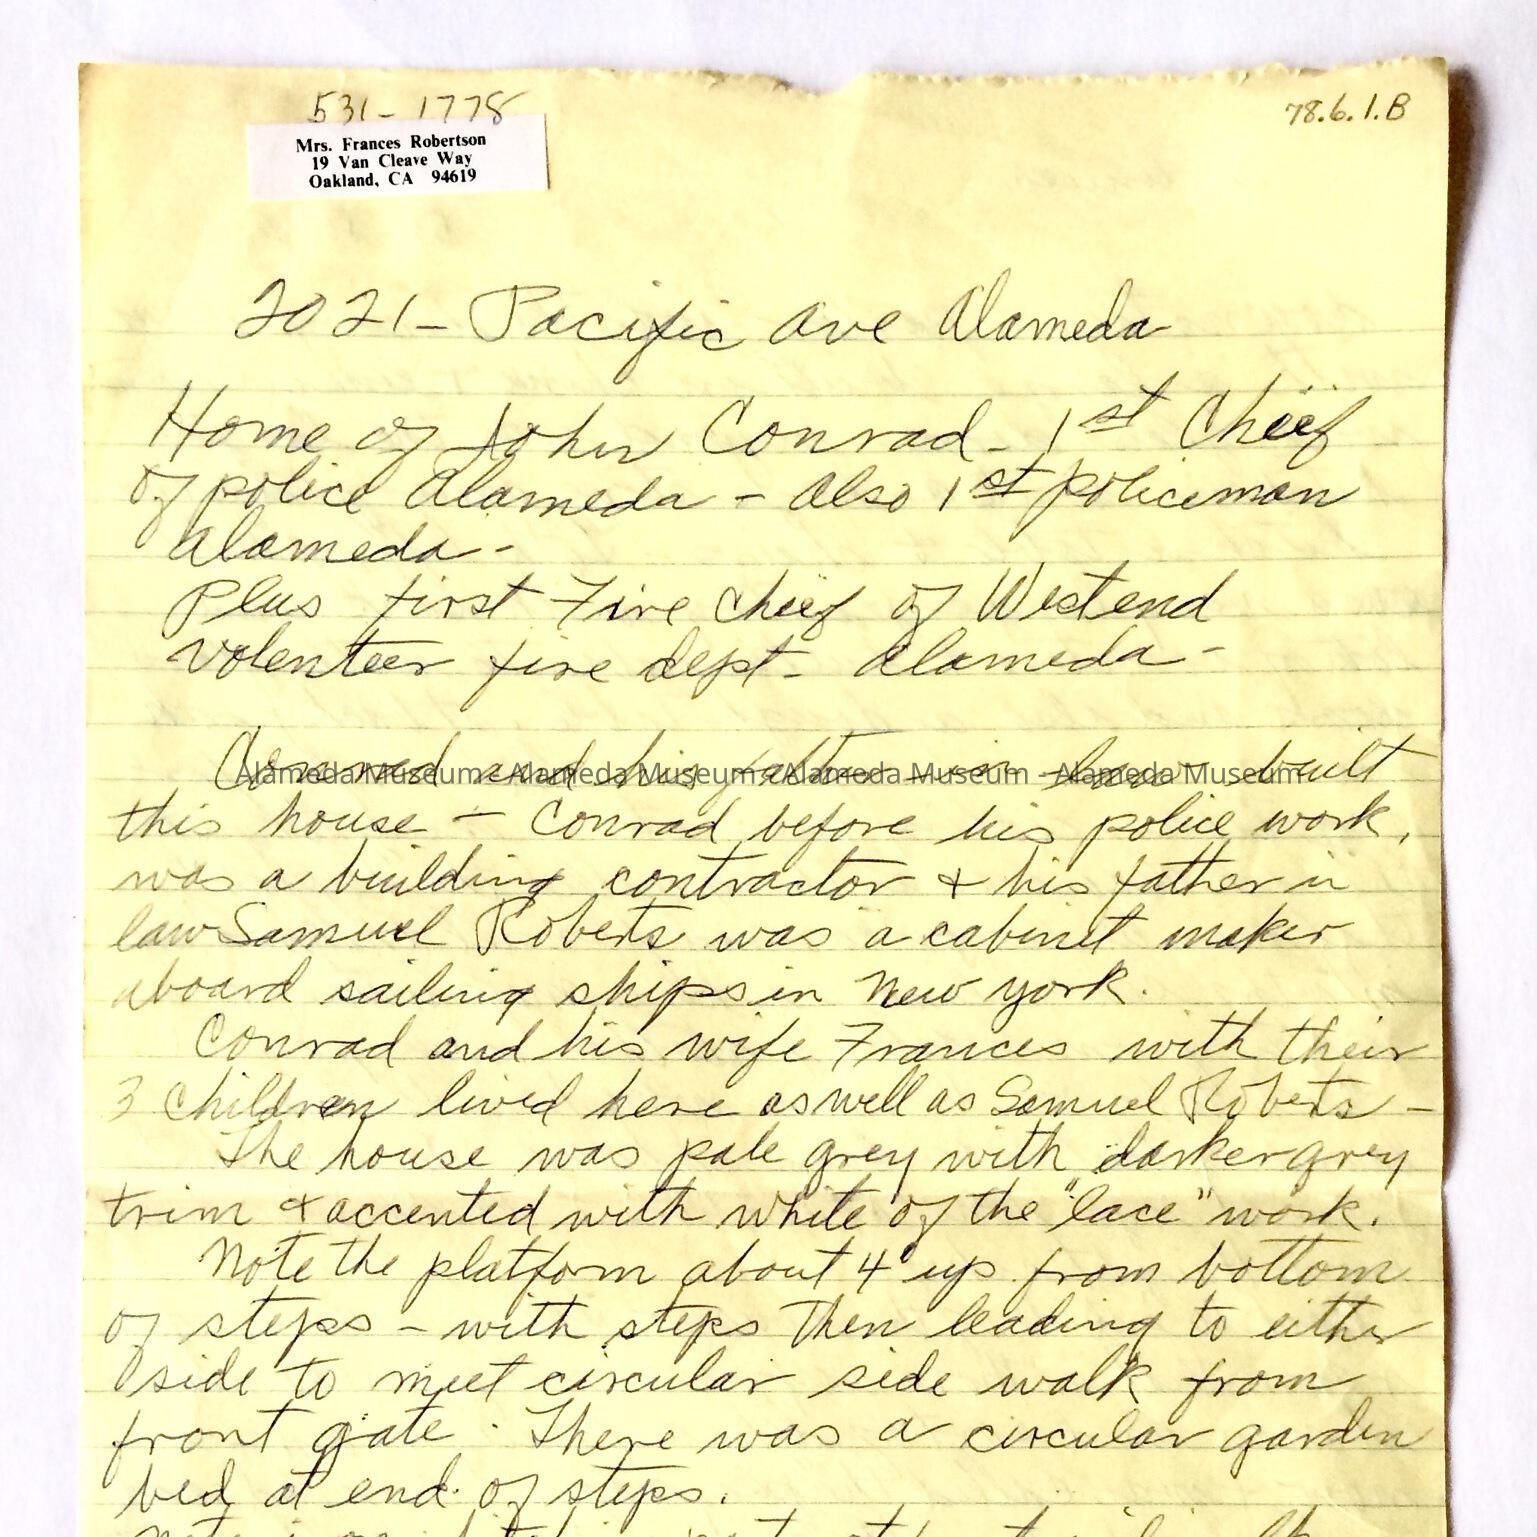 531-1778
78.6.1.B
Mrs. Frances Robertson
19 Van Cleave Way
Oakland, CA 94619
2021 - Pacific Ave Alameda
Home of John Conrad - 1st Chief
of police Alameda - Also 1st policeman
Alameda -
Plus first Fire Chief of West end
volenteer fire dept - Alameda -
Conrad and his father - in - law built
Alameda Museum - Alameda Museum - Alameda Museum - Alameda Museum
this house - Conrad before his police work,
was a building contractor & his father in
law Samuel Roberts was a cabinet maker
aboard sailing ships in New York.
Conrad and his wife Frances with their
3 children lived here as well as Samuel Roberts -
The house was pale grey with darker grey
trim & accented with white of the "lace" work.
Note the platform about 4' up from bottom
of steps - with steps then leading to either
side to meet circular side walk from
front gate. There was a circular garden
bed at end of steps.